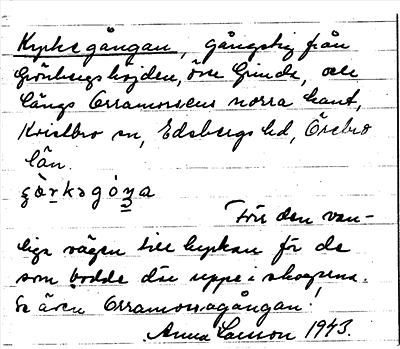 Kyrkegången, gångstig från
Grönbergshöjden, öve Grinde, och
längs Orramossens norra kant,
Kvistbro sn, Edsbergs hd, Örebro
län.
Förr den van-
liga vägen till kyrkan för de
som bodde där uppe i skogarna.
Se även Orramossagången!
Anna Larsson 1943.